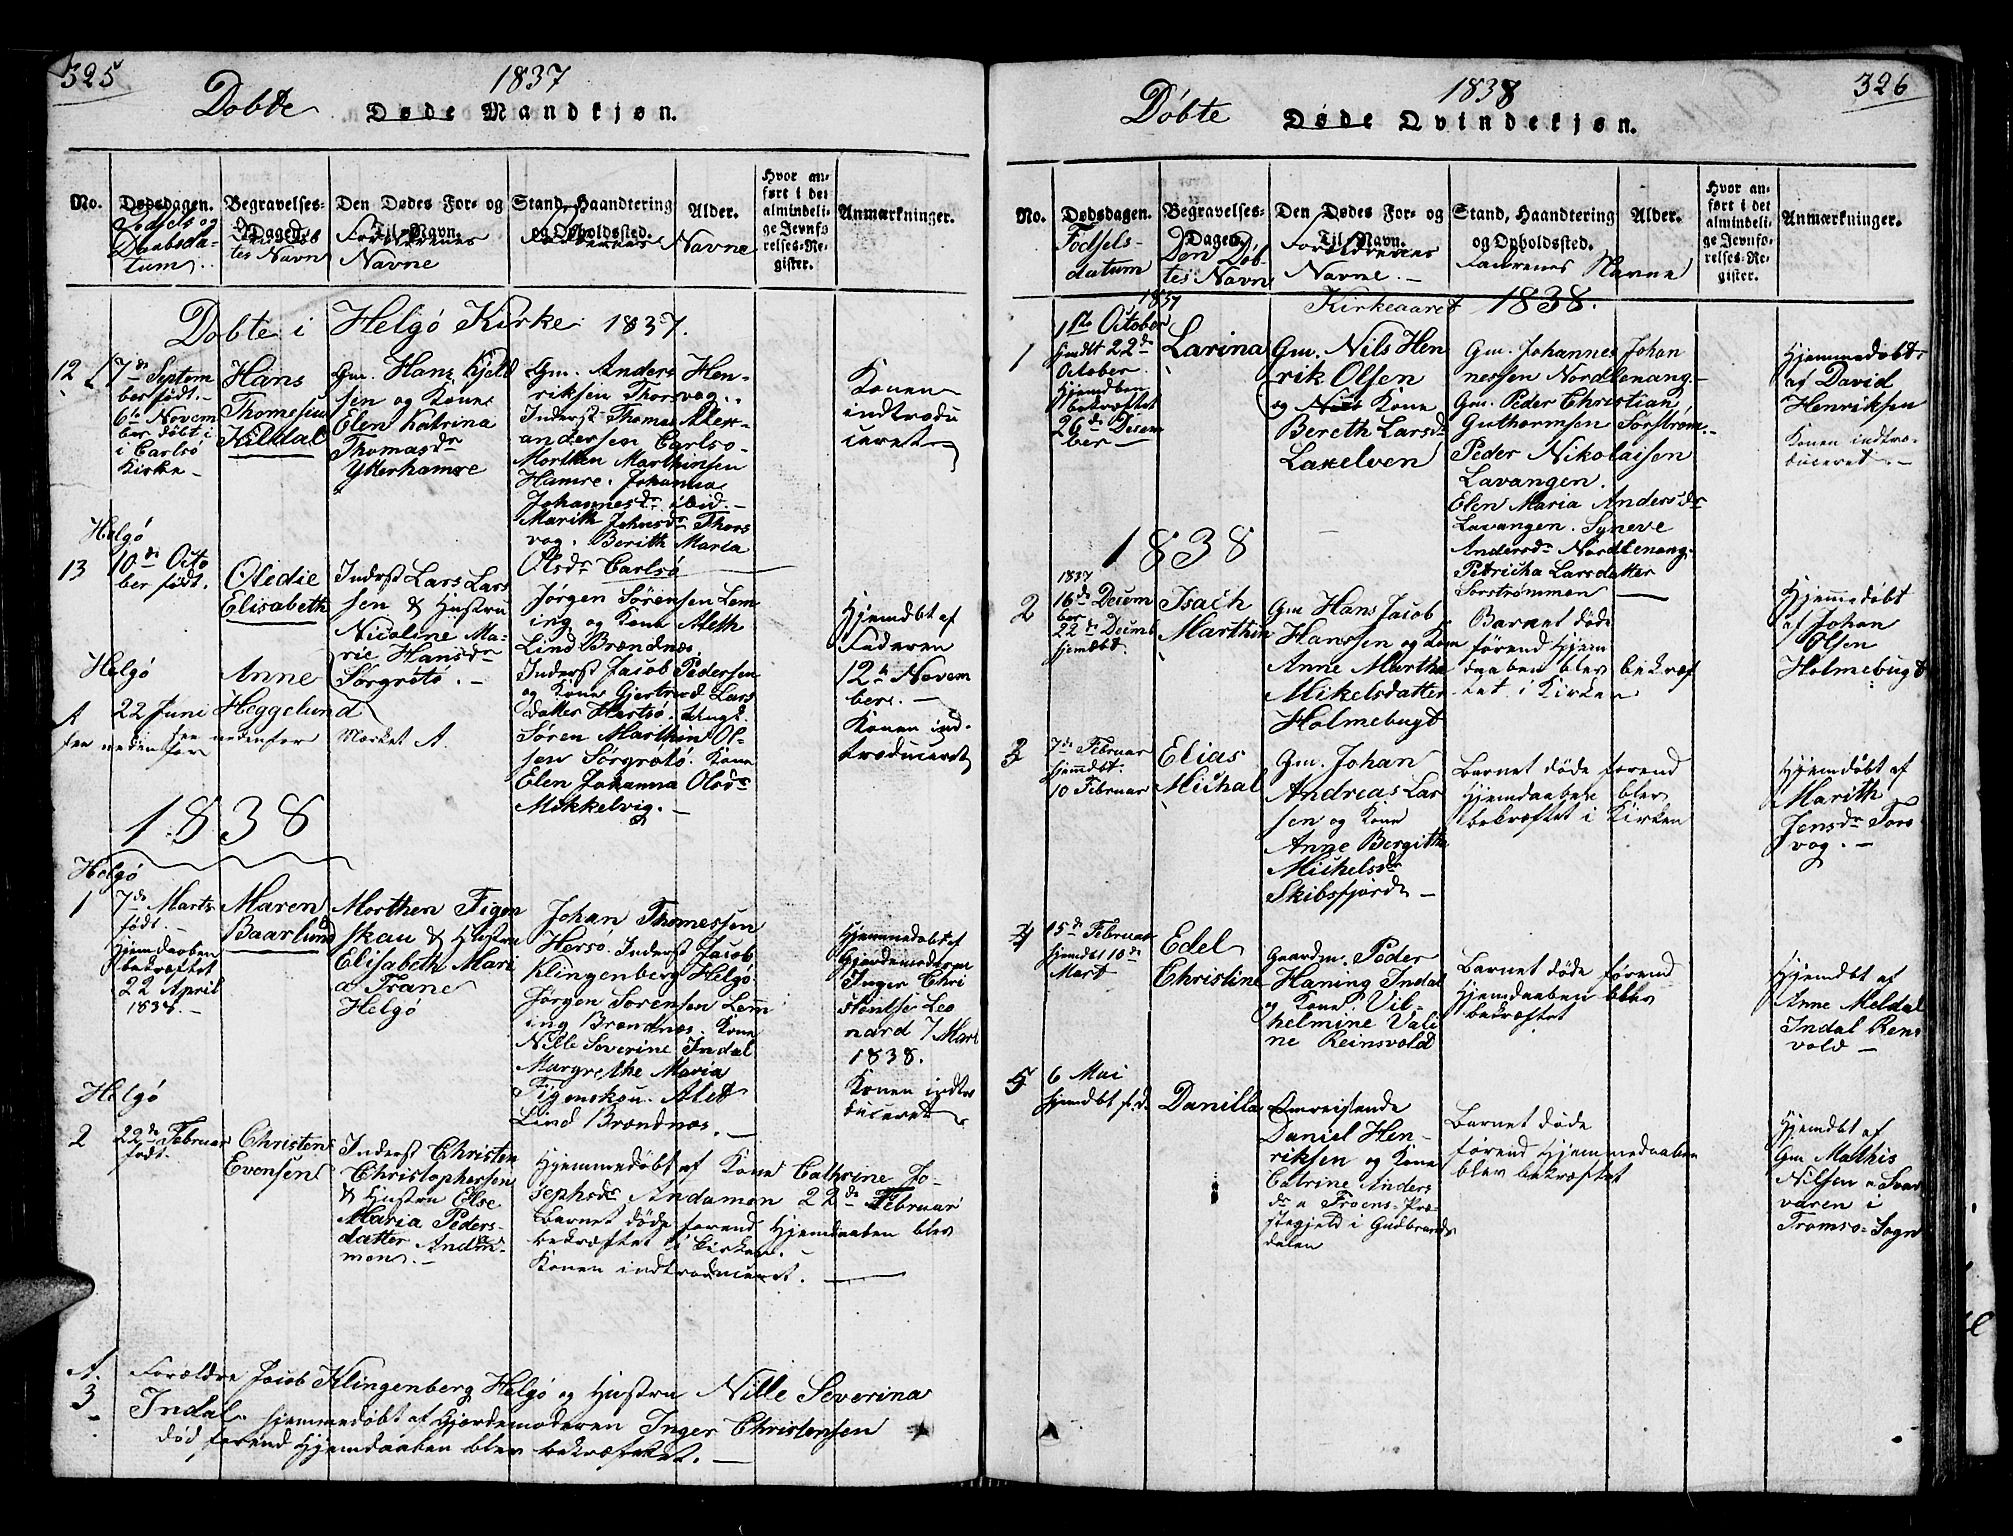 325
1837
Dobte Døde Mandkjøn.
No.
Dødsdagen.
Fødsels og
Daabsda-
tum.
Begravelses-
Dagen.
tes Navn
Den Dødes For- og
Til-Navn.
Forældrenes
Navne
Stand, Haandtering
og Opholdssted.
Faddernes Navne
Alder.
Hvor an-
ført i det
almindeli-
ge Jevnfø-
relses-Re-
gister.
Anmærkninger.
Dobte i Helgö Kirke 1837.
12
17de Septem
ber født.
6te Novem
ber døbt i
i Carlsö
Kirke
Hans
Thomesius
Nildal
Gm. Hans Kjeld
sen og Kone
Elen Katrina
Thomasdr
Ytterhamre
Gm. Anders Hen-
riksen Thorsvog.
Inderst Thomas Alex-
andersen Carlsö
Morthen Marthinsen
Hamre. Johanna
Johannesdr ibid.
Marith Johnsdr Thors
vog. Berith Maria
Olsdr Carlsö
Konen
indtrodu
ceret
Helgö
13
10de Octo
ber født.
Oledie
Elisabeth
Inderst Lars Lars
sen & Hustru
Nicoline Ma-
rie Hansdr
Sörgrotö.
Jørgen Sörensen Lem
ing og Kone Aleth
Lind Brændnæs.
Inderst Jacob Pedersen
og Kone Gjertrud Lars
datter Hersö.
Sören Marthin Ol-
sen Sörgrotö. Kone
Elen Johanna Olsdr
Mikkelvig.
Hjemdøbt af
Faderen
12te Novem
ber.
Konen ind-
troduceret
Helgö
A
22 Juni
see nedenfor
Anne
Heggelund
see nedenfor
Mærket A.
1838
Helgö
1
7de Marts
født.
Hjemdaaben
bekræftet
22 April
1838.
Maren
Baarlund
Morthen Figen
skau & Hustru
Elisabeth Mari
a Trane
Helgö
Johan Thomessen
Hersö. Inderst Jacob
Klingenberg Helgö
Jørgen Sörensen Lem
ing Brændnæs. Kone
Nille Severine Indal
Margrethe Maria
Figenskou. Alet
Lind Brændnæs.
Hjemmedøbt af
Gjordemoderen
Inger Chri
stentse Leo
nard 7 Mart
1838.
Konen indtro
duceret
Helgö
2
22de Februar
født.
Christen
Evensen
Inderst Christen
Christophersen
& Hustru Else
Maria Peders-
datter Andam-
men.
Hjemmedøbt af Kone Cathrine Jo-
sephsdr Andamen 22de Februar
Barnet døde forend Hjemdaaben blev
bekræftet i Kirken.
Konen indtroduceret.
A.
3
Forældre Jacob Klingenberg Helgö og Hustru Nille Severina
Indal. hjemmedøbt af Gjordemoderen Inger Christensen
død forend Hjemdaaben blev bekræftet.
326
1838
Döbte Døde Qvindekjøn.
No.
Dødsdagen.
Fødsels-
datum
Begravelses-
Dagen.
Den Döb-
tes Navn
Den Dødes For- og
Til-Navn.
Forældrenes
Navne
Stand, Haandtering
og Opholdssted.
Faddernes Navne
Alder.
Hvor an-
ført i det
almindeli-
ge Jevnfø-
relses-Re-
gister.
Anmærkninger.
Kirkeaaret 1838.
1
1837
1ste October
hjmdt 22de
October
Hjemdben
bekræftet
26de Decem
ber
Larina
Gm. Nils Hen
rik Olsen
og Kone
Bereth Larsdr
Laxelven
Gm. Johannes Johan
nessen Nordlenang.
Gm. Peder Christian
Guthormsen Sorstrøm.
Peder Nikolaisen
Lavangen.
Elen Maria Andersdr
Lavangen. Syneve
Andersdr Nordlenang.
Petricha Larsdatter
Sorstrømmen
Hjemmedøbt
af David
Henriksen
Konen indtro-
duceret
1838
2
1837
16de Decem
ber
22de Decemb
hjemdbt.
Isach
Marthin
Gm Hans Jacob
Hanssen og Kone
Anne Martha
Mikelsdatter
Holmebugt
Barnet döde
förend Hjem
daaben blev bekræf
tet i Kirken
Hjemmedøbt
af Johan
Olsen
Holmebugt
3
7de Februar
hjemmdbt.
10 Februar
Elias
Michal
Gm. Johan
Andreas Lar
sen og Kone
Anne Bergitha
Michelsdr
Skibsfjord
Barnet döde forend
Hjemdaaben blev
bekræftet i Kirken
Hjemdøbt af
Marith
Jensdr Tors
vog.
4
15de Februar
hjemdbt 10de
Mart
Edel
Christine
Gaardm. Peder
Haning Indal
og Kone Vil-
helmine Vali
ne Reinsvold
Barnet döde förend
Hjemdaaben blev
bekræftet
Hjemdbt af
Anne Meldal
Indal Rens
vold
5
6 Mai
hjemdbt s.d.
Danilla
Omreisende
Daniel Hen-
riksen og Kone
Catrine Anders
dr a Froens Præ
stegjeld i Gudbrands
dalen
Barnet döde
förend Hjemmedaaben
blev bekræftet
Hjemdbt af
Gm Mathis
Nilsen a Svar
varen i
Tromsö Sogn